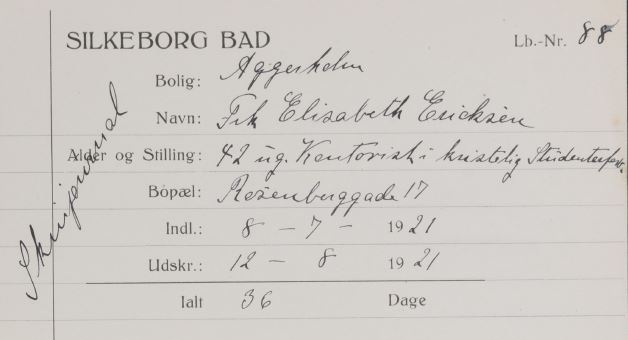 SILKEBORG BAD Lb.-Nr. 88
Bolig: Aggersholm
Navn: Frk Elisabeth Ericksen
Alder og Stilling: 42 ug. Kontorist i kristelig Studenterfor.
Bopæl: Rosenborggade 17
Indl.: 8 - 7 - 1921
Udskr.: 12 - 8 1921
Ialt 36 Dage